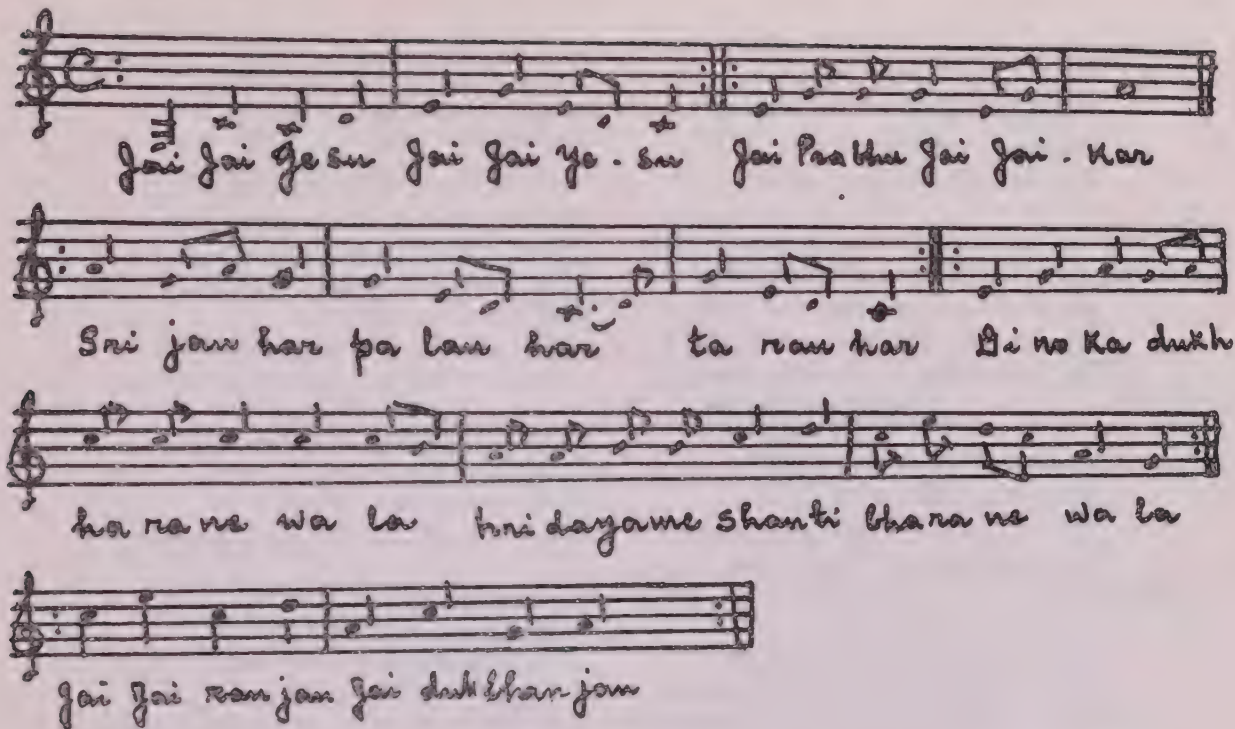 Jai Jai Yesu Jai Jai Ye - su Jai Prabhu Jai Jai - Kar
Sri jan har pa lan har ta ran har Di no Ka dukh
ha ra ne wa la hri dayame shanti bhara ne wa la
Jai Jai ran jan Jai dukh bhan jan